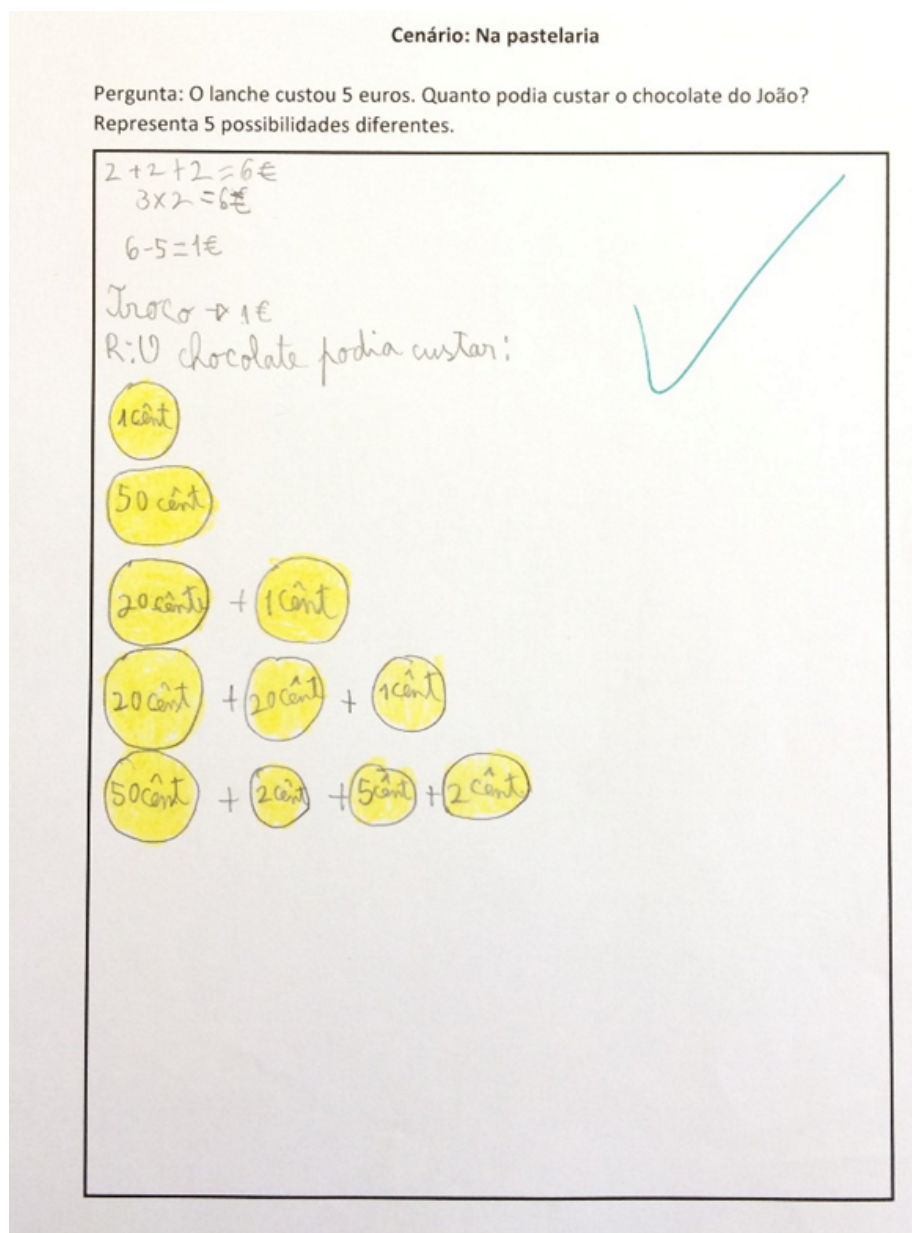 Cenário: Na pastelaria
Pergunta: O lanche custou 5 euros. Quanto podia custar o chocolate do João?
Representa 5 possibilidades diferentes.
2+2+2=6€
3x2=6€
6-5=1€
Troco → 1€
R: O chocolate podia custar:
1 cênt
50 cênt
20 cênt + 1 cênt
20 cênt + 20 cênt + 1 cênt
50 cênt + 2 cênt + 5 cênt + 2 cênt